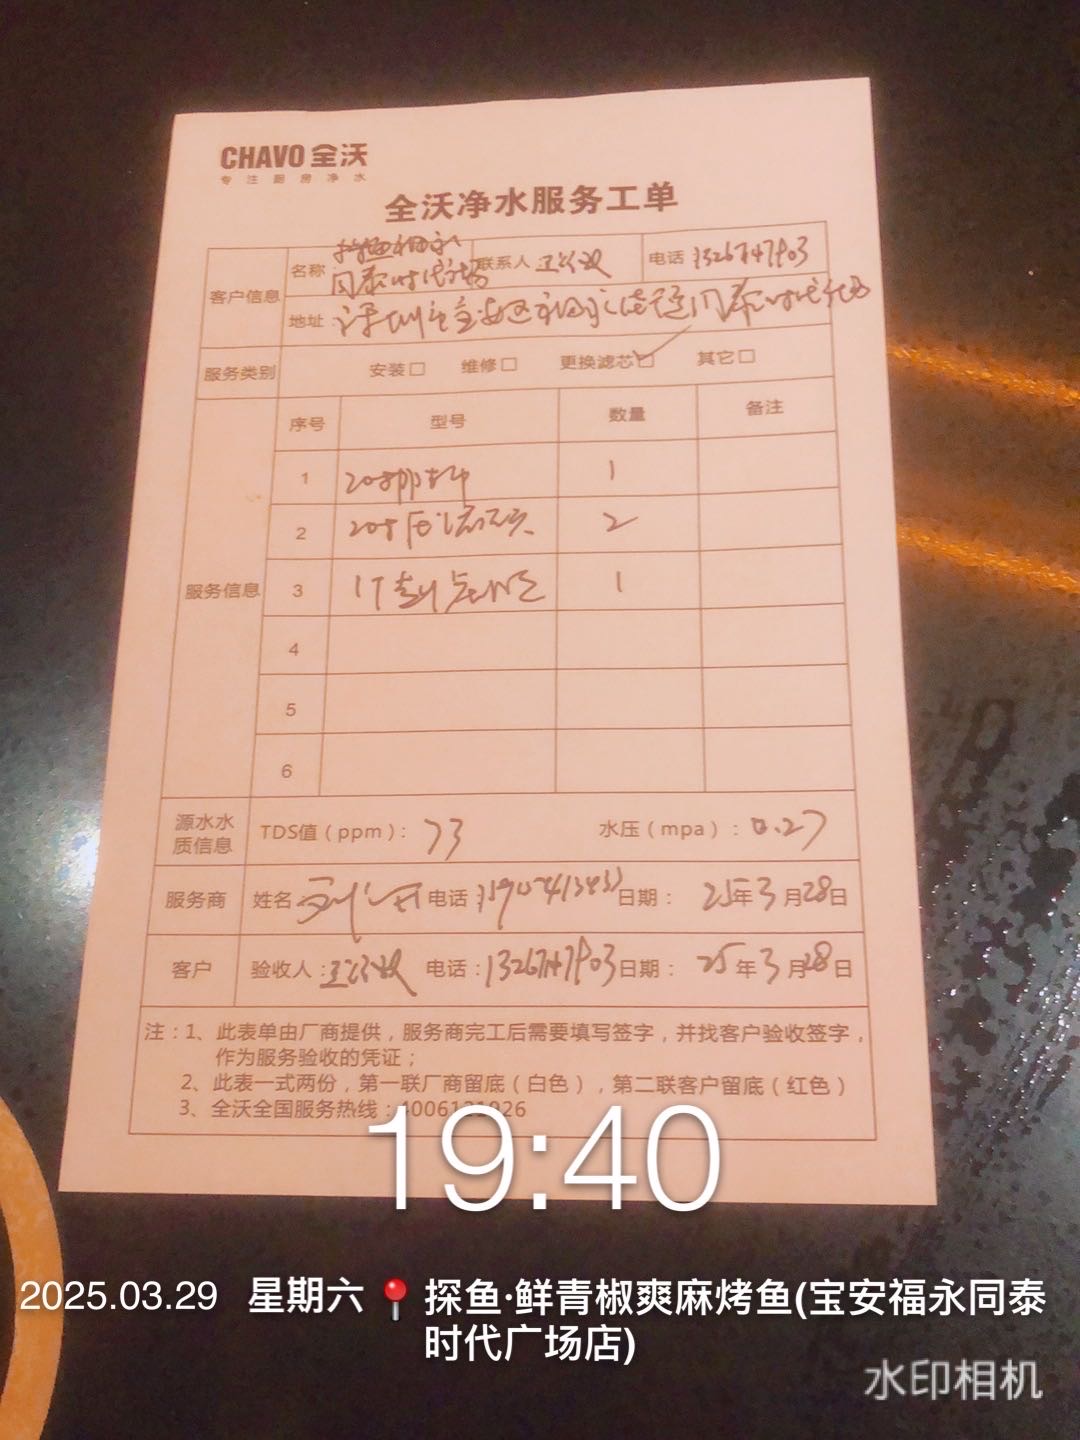 CHAVO 全沃
专注厨房净水
全沃净水服务工单
客户信息
名称: 探鱼福永
同泰时代广场
联系人
电话
地址: 深圳市宝安区福永街道同泰时代广场
服务类别 安装□ 维修□ 更换滤芯☑ 其它□
服务信息
序号 型号 数量 备注
1 1
2 2
3 1
4
5
6
源水水质信息 TDS值(ppm): 73 水压(mpa): 0.27
服务商 姓名 电话 日期: 25年3月28日
客户 验收人: 电话: 日期: 25年3月28日
注:1、此表单由厂商提供，服务商完工后需要填写签字，并找客户验收签字，
作为服务验收的凭证；
2、此表一式两份，第一联厂商留底(白色)，第二联客户留底(红色)
3、全沃全国服务热线:
19:40
2025.03.29 星期六 📍探鱼·鲜青椒爽麻烤鱼(宝安福永同泰
时代广场店)
水印相机